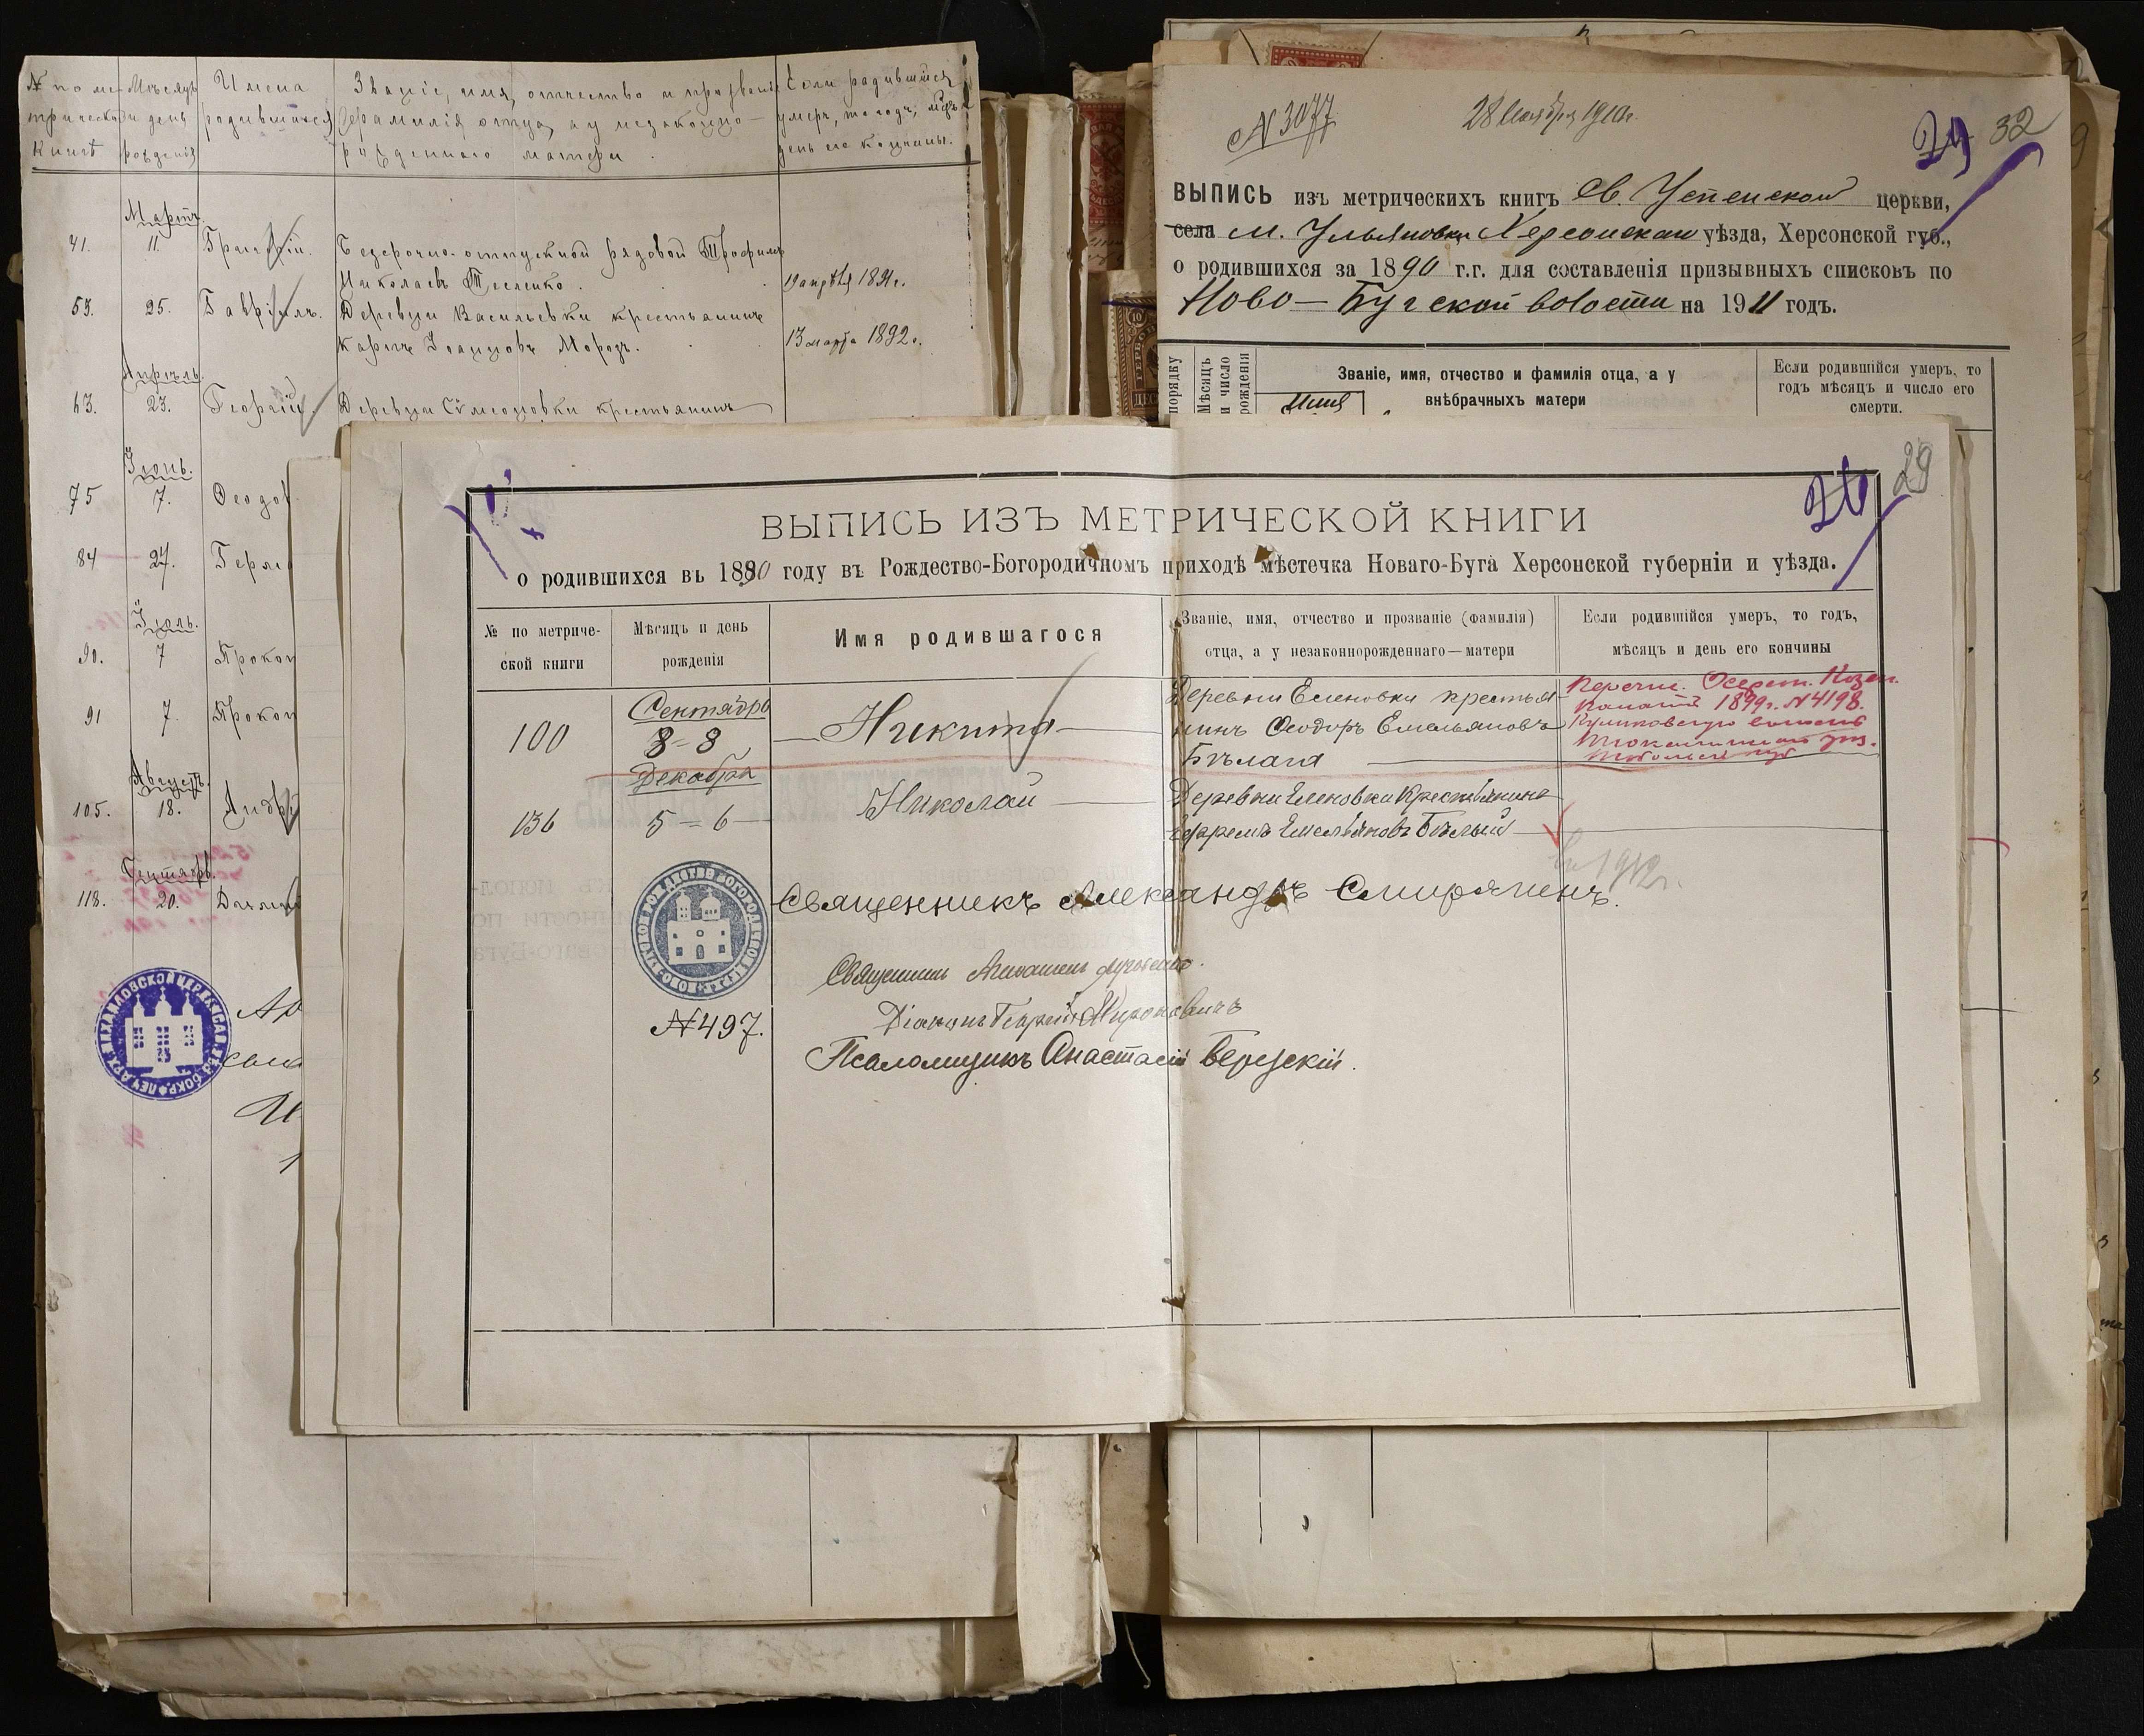 № по ме-
трической
книгѣ
Мѣсяцъ
и день
рожденія
Имена
родившихся
Званіе, имя, отчество и прозваніе
фамилія отца, а у незаконно-
рожденнаго матери.
Если родившійся
умеръ, то годъ, мѣс.
день его кончины.
Мартъ.
41. 11. Григорій. Безсрочно-отпускной рядовой Трофимъ
Николаевъ Тесленко. 19 апрѣля 1891 г.
53. 25. Гавріилъ. Деревни Васильевки крестьянинъ
Карпъ Іоанновъ Морозъ. 13 марта 1892 г.
Апрѣль.
63. 23. Георгій. Деревни Симеоновки крестьянинъ
Іюнь.
75 7. Ѳеодо
84 27.
Іюль.
90. 7 Прокоп
91 7. Прокоп
Августъ.
105. 18. Андр
Сентябрь.
118. 20.
№ 3077
28 Ноября 1910 г.
29 32
ВЫПИСЬ изъ метрическихъ книгъ Св. Успенской церкви,
села м. Ульяновки Херсонскаго уѣзда, Херсонской губ.,
о родившихся за 1890 г.г. для составленія призывныхъ списковъ по
Ново-Бугской волости на 1911 годъ.
порядку
Мѣсяцъ
и число
рожденія
Имя
Званіе, имя, отчество и фамилія отца, а у
внѣбрачныхъ матери
Если родившійся умеръ, то
годъ мѣсяцъ и число его
смерти.
26 29
ВЫПИСЬ ИЗЪ МЕТРИЧЕСКОЙ КНИГИ
о родившихся въ 1890 году въ Рождество-Богородичномъ приходѣ мѣстечка Новаго-Буга Херсонской губерніи и уѣзда.
№ по метриче-
ской книги
Мѣсяцъ и день
рожденія
Имя родившагося
Званіе, имя, отчество и прозваніе (фамилія)
отца, а у незаконнорожденнаго—матери
Если родившійся умеръ, то годъ,
мѣсяцъ и день его кончины
Сентября
100 8-8 Никита
Деревни Еленовки крестья-
нинъ Ѳеодоръ Емельяновъ
Бѣлага
Перечис. Хозен.
Палатой 1899 г. № 4198.
волость
Тюкалинскаго уѣз.
Тобольской губ
Декабря
136 5-6 Николай
Деревни Еленовки Крестьянина
Ефремъ Емельяновъ Бѣлый
1912 г.
Священникъ Александръ Смирягинъ.
Священникъ
Діаконъ Георгій Мироновичъ
№ 497.
Псаломщикъ Анастасій Березскій.